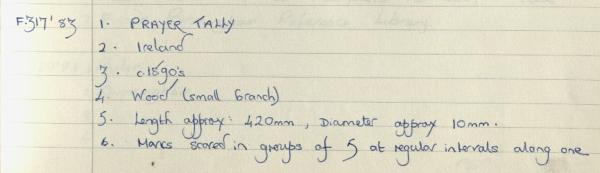 F.317'83 1. PRAYER TALLY
2. Ireland
3. c.1890's
4. Wood (small branch)
5. Length approx: 420mm, Diameter approx 10mm.
6. Marks scored in groups of 5 at regular intervals along one